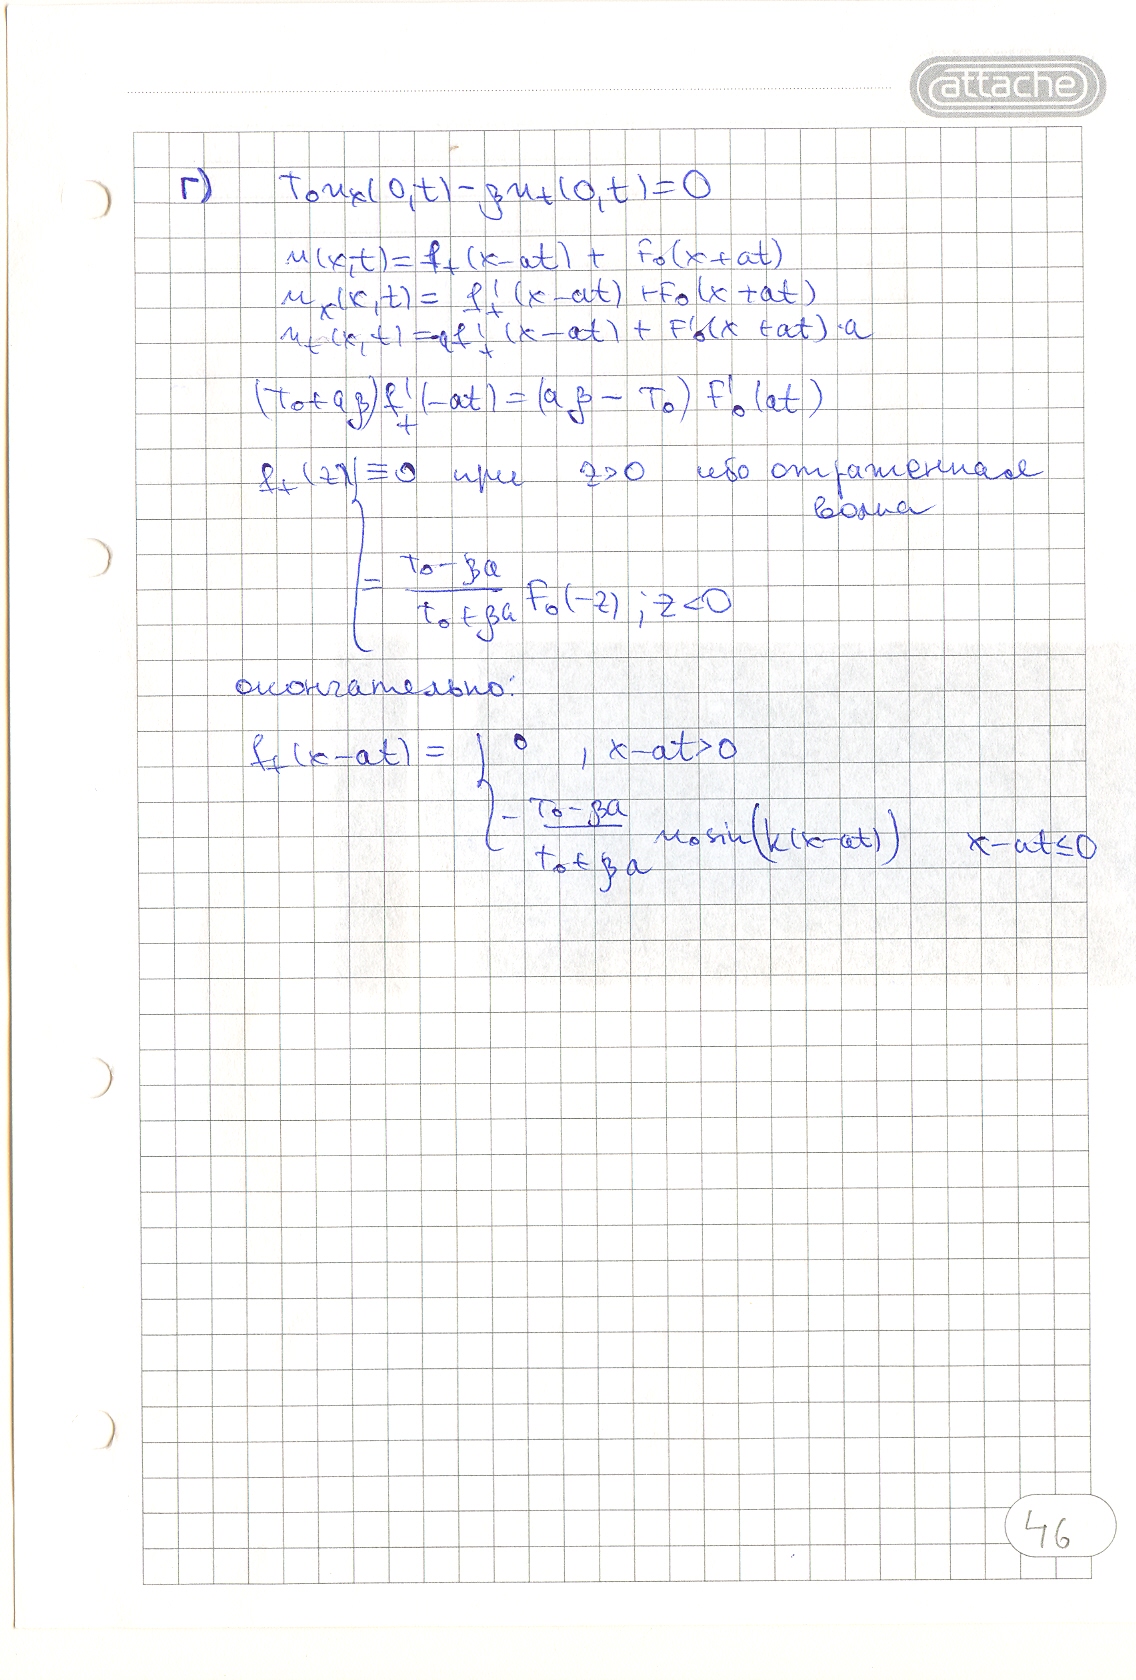 attache
г) T₀uₓ(0,t) - βuₜ(0,t) = 0
u(x,t) = f₊(x-at) + F₀(x+at)
uₓ(x,t) = f₊'(x-at) + F₀(x+at)
uₜ(x,t) = -af₊'(x-at) + F₀'(x+at)·a
(T₀+aβ)f₊'(-at) = (aβ - T₀) F₀'(at)
f₊(z) ≡ 0 при z>0 ибо отраженная
волна
= (T₀-βa)/(T₀+βa) F₀(-z) ; z<0
окончательно:
f₊(x-at) = { 0 , x-at>0
- (T₀-βa)/(T₀+βa) u₀ sin(k(x-at)) x-at≤0
46